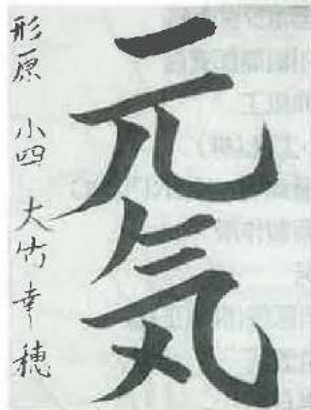 元気
形原 小四 大竹幸穂